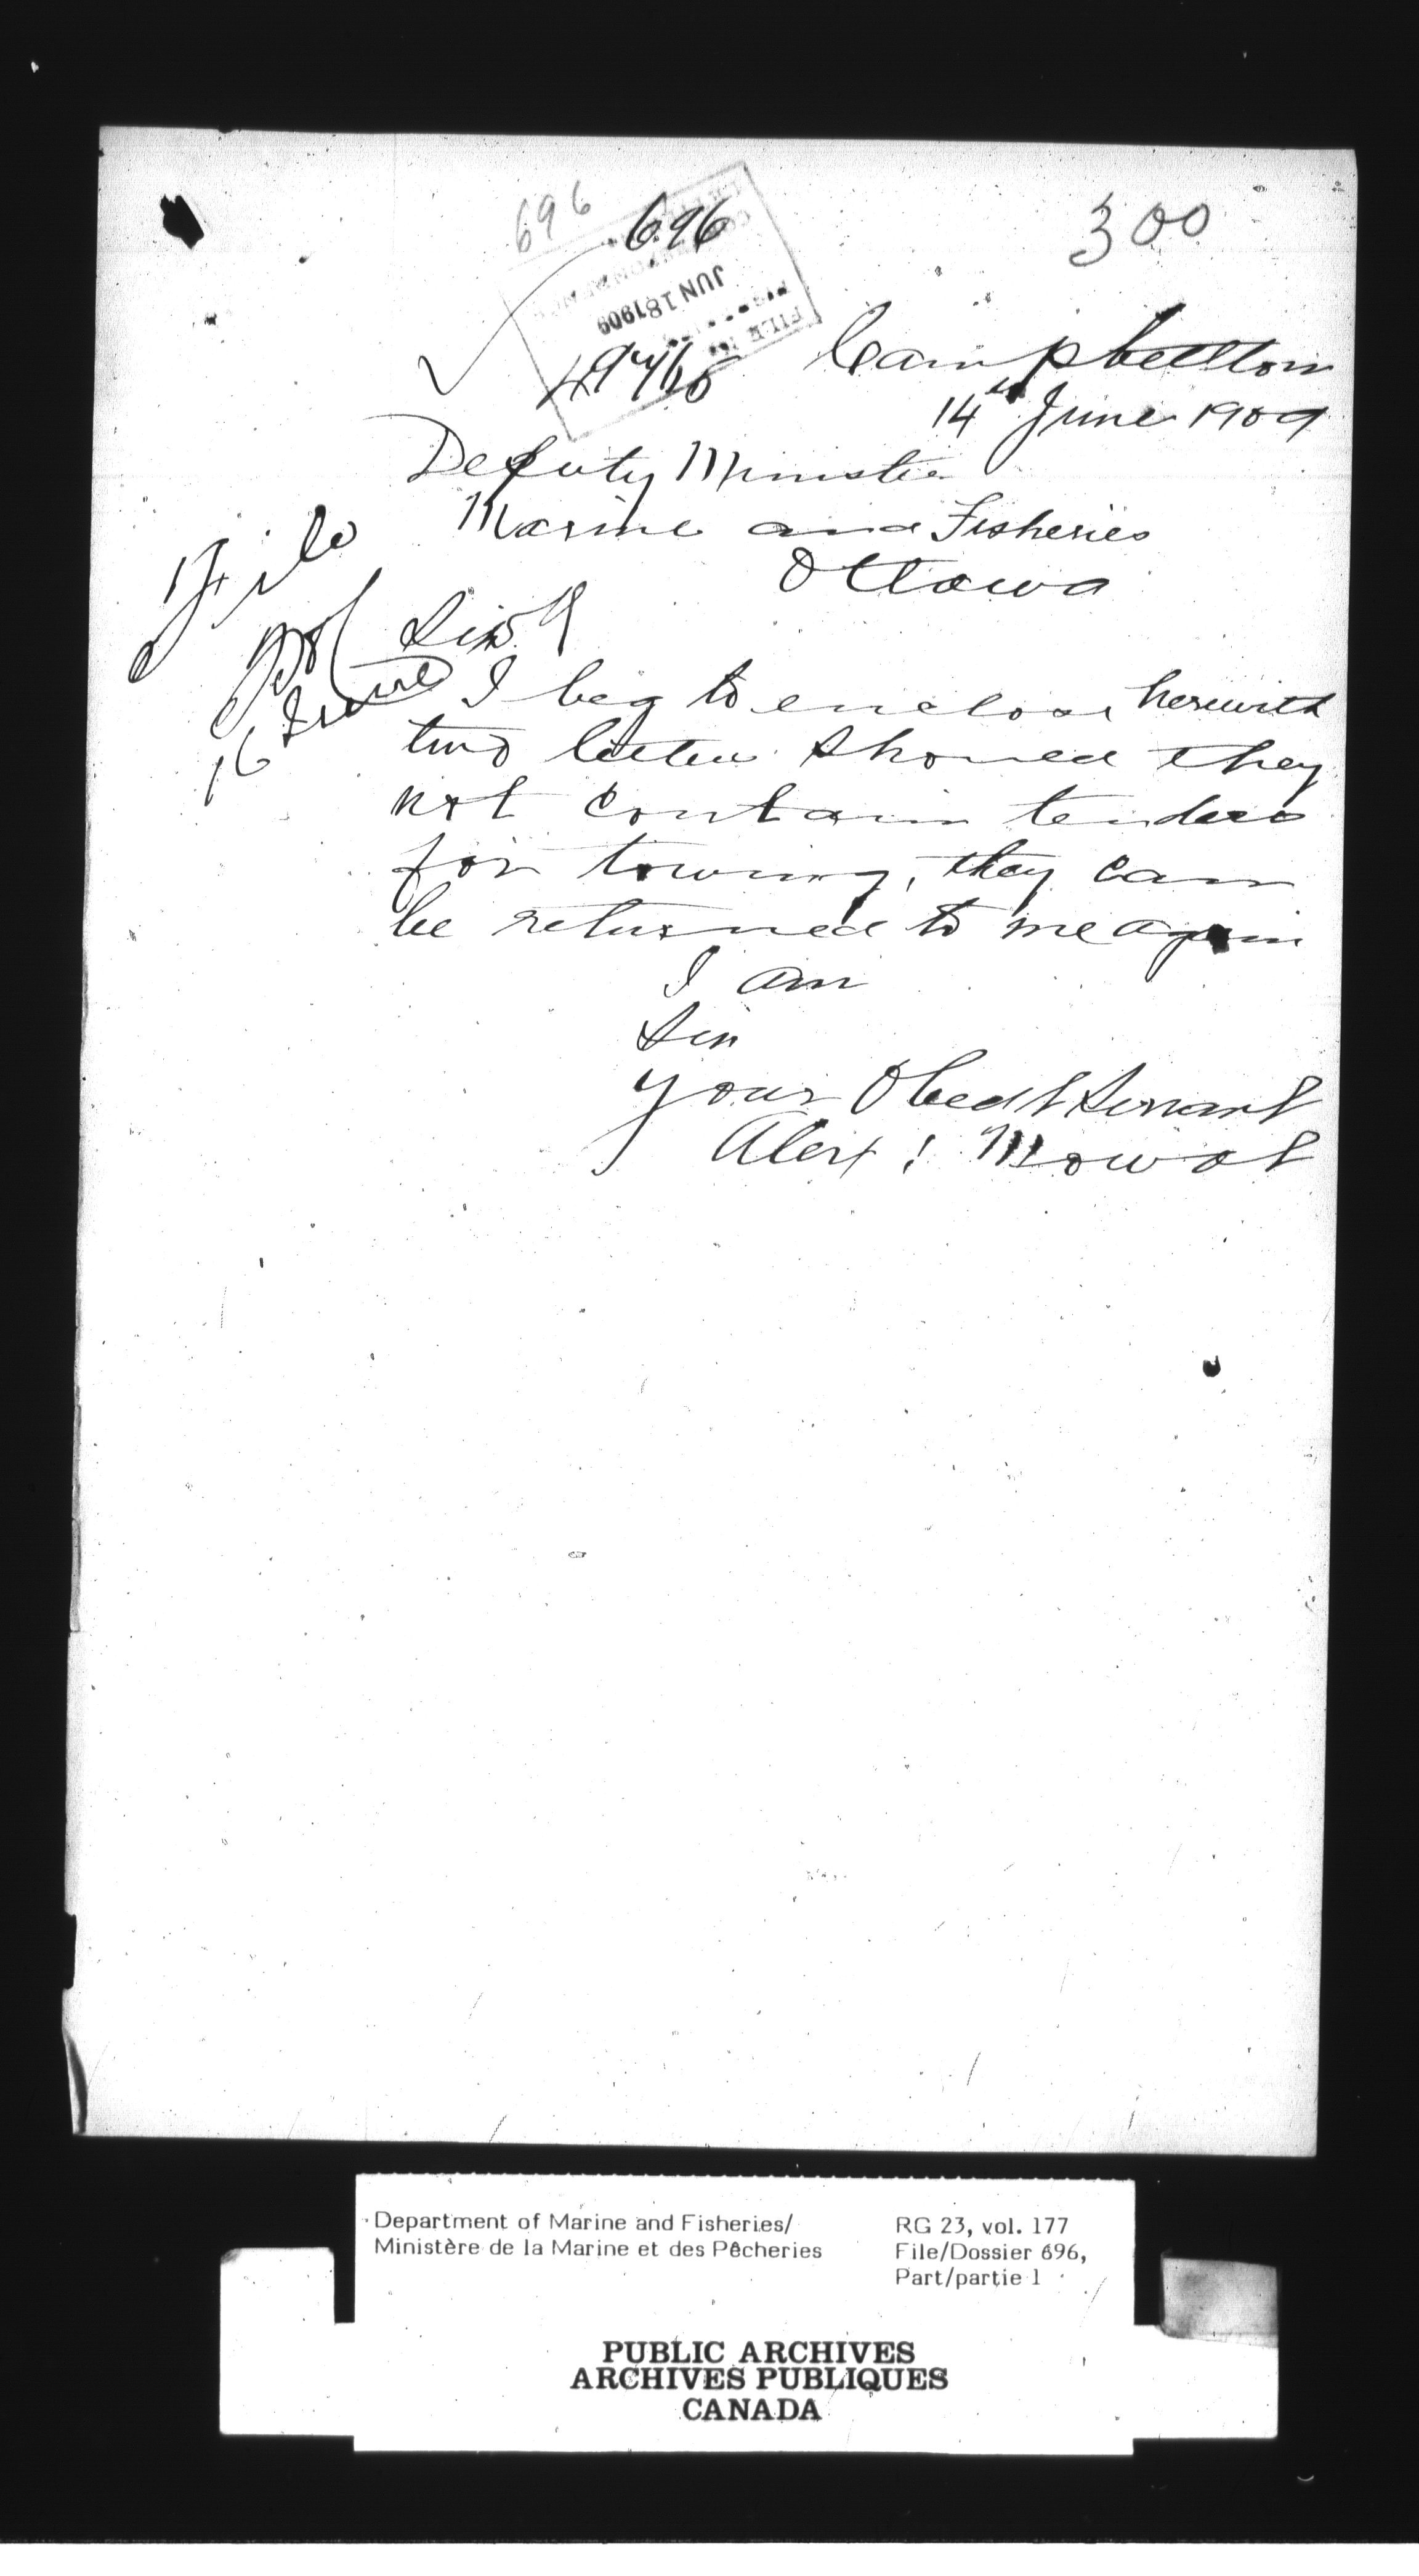 696
696
300
JUN 18 1909
FILE
Campbellton
14th June 1909
Deputy Minister
Marine and Fisheries
Ottawa
File
16 June
Sir
I beg to enclose herewith
two letters should they
not contain tenders
for towing, they can
be returned to me again
I am
Sir
your Obedt Servant
Alex: Mowat
Department of Marine and Fisheries/ RG 23, vol. 177
Ministère de la Marine et des Pêcheries File/Dossier 696,
Part/partie 1
PUBLIC ARCHIVES
ARCHIVES PUBLIQUES
CANADA